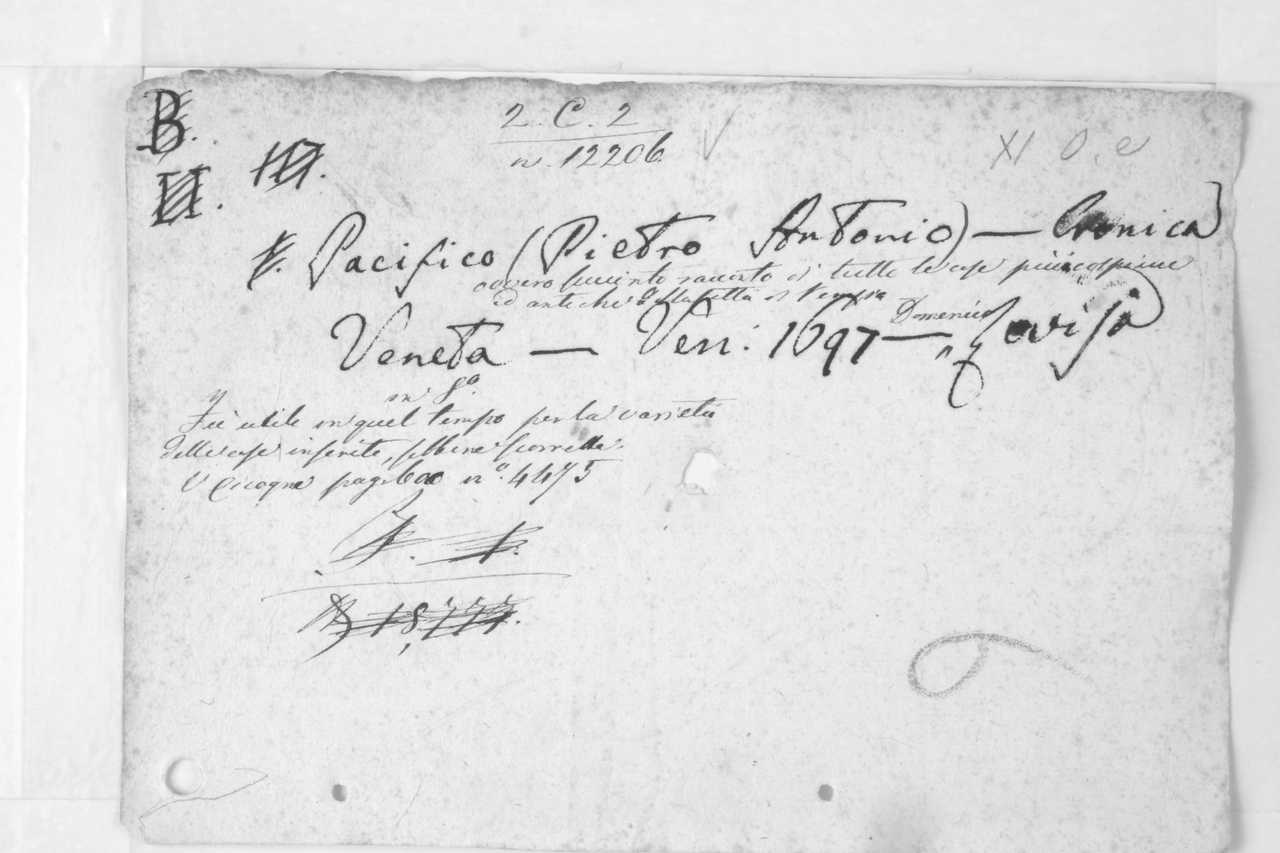 B.
2. C. 2
n. 12206
XI O. e
II.
Pacifico (Pietro Antonio) — Cronica
ovvero succinto racconto di tutte le cose più cospicue
ed antiche della città di Venezia
Domenico
Veneta — Ven: 1697 — Lovisa
in 8º
Fu utile in quel tempo per la varietà
delle cose inserite, sebbene scorrette.
V Cicogna pag. 600 nº. 4475